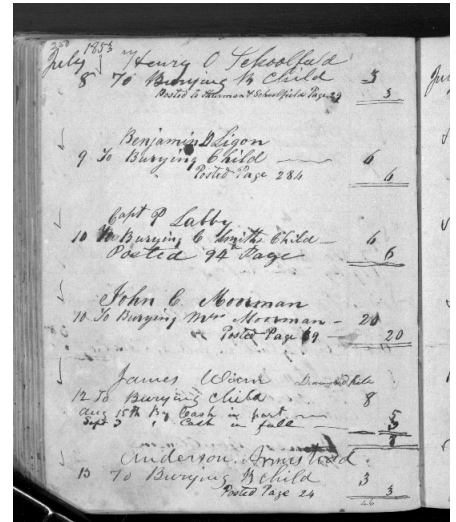 250
July 1853 Henry O Schoolfield
8 To Burying B Child 3
Posted to Moorman & Schoolfield Page 29 3
Benjamin D Ligon
9 To Burying Child 6
Posted Page 284 6
Capt P Labby
10 To Burying C Smith Child 6
Posted 94 Page 6
John C. Moorman
10 To Burying Mrs Moorman 20
Posted Page 69 20
James
12 To Burying Child 8
Aug 15th By Cash in part 5
Sept 3 " Cash in full 3
8
Anderson Armistead
13 To Burying B Child 3
Posted Page 24 3